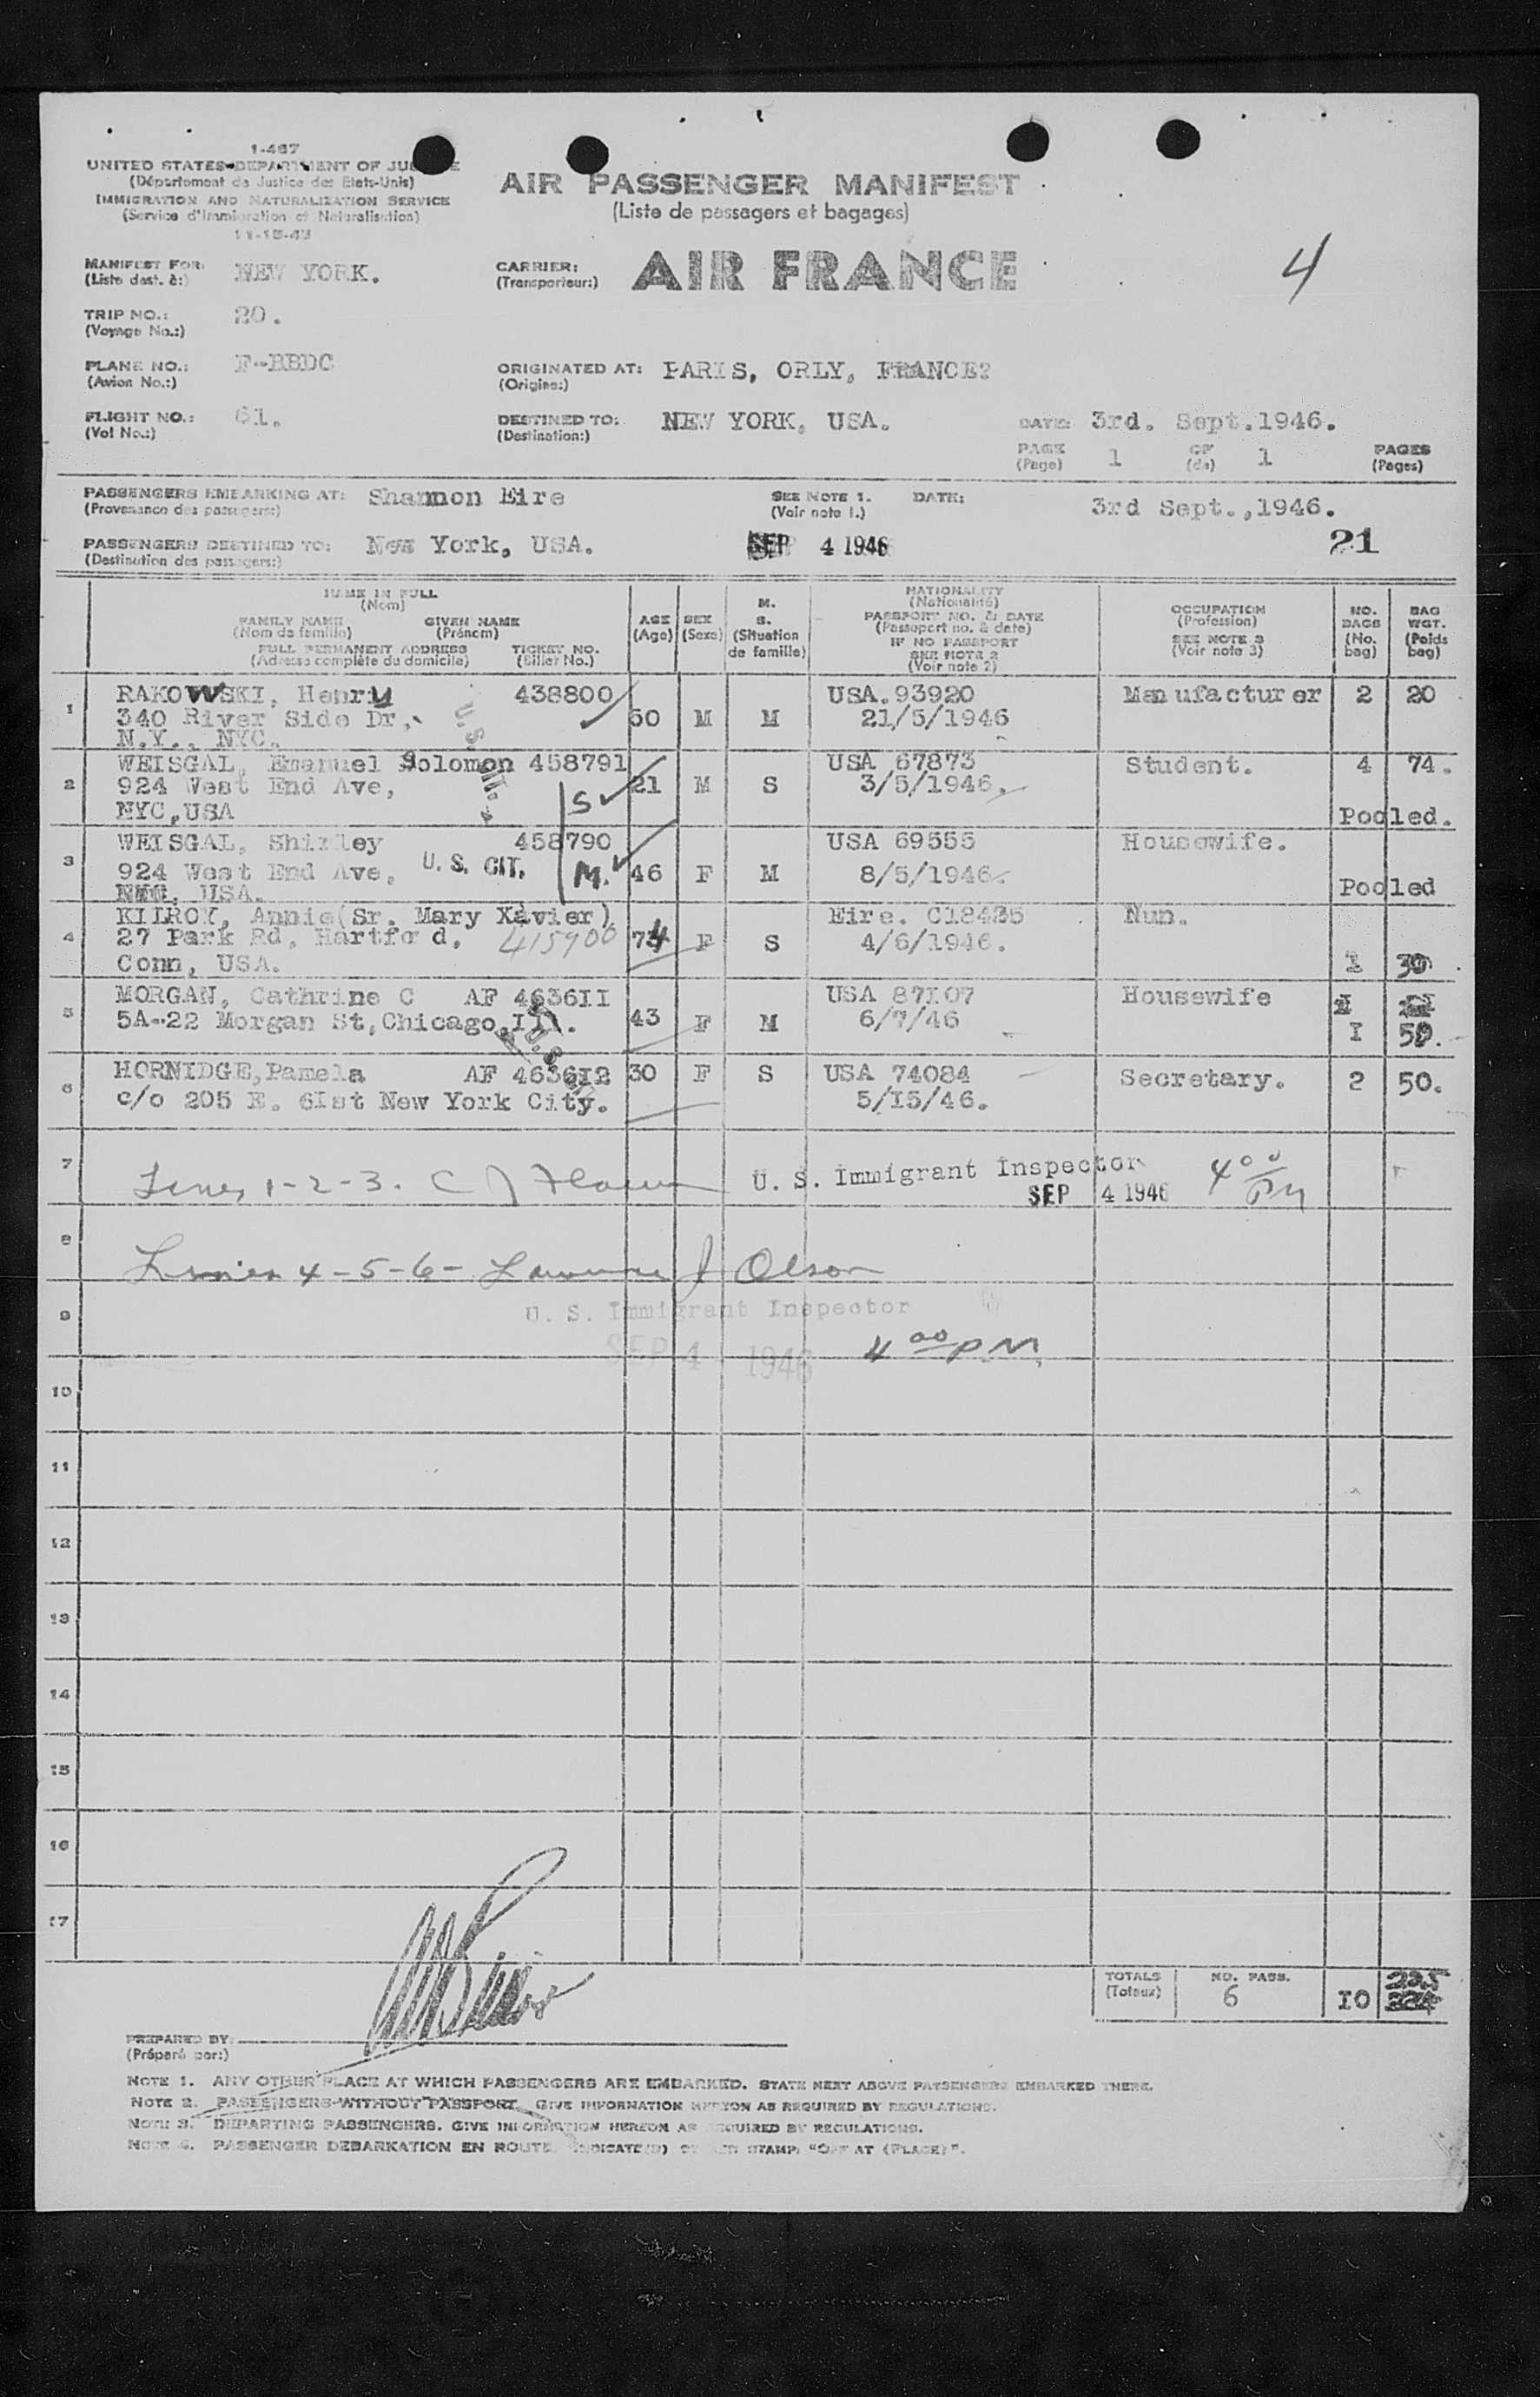 1-467
UNITED STATES DEPARTMENT OF JUSTICE
(Département de Justice des Etats-Unis)
IMMIGRATION AND NATURALIZATION SERVICE
(Service d'Immigration et Naturalisation)
11-15-43
AIR PASSENGER MANIFEST
(Liste de passagers et bagages)
4
MANIFEST FOR: NEW YORK.
(Liste dest. à:)
CARRIER: AIR FRANCE
(Transporteur:)
TRIP NO.: 20.
(Voyage No.:)
PLANE NO.: F-BBDC
(Avion No.:)
ORIGINATED AT: PARIS, ORLY, FRANCE?
(Origine:)
FLIGHT NO.: 61.
(Vol No.:)
DESTINED TO: NEW YORK, USA.
(Destination:)
DATE: 3rd. Sept.1946.
PAGE 1 OF 1 PAGES
(Page) (de) (Pages)
PASSENGERS EMBARKING AT: Shannon Eire
(Provenance des passagers:)
SEE NOTE 1. DATE: 3rd Sept.,1946.
(Voir note 1.)
PASSENGERS DESTINED TO: New York, USA.
(Destination des passagers:)
SEP 4 1946
21
NAME IN FULL
(Nom)
FAMILY NAME GIVEN NAME
(Nom de famille) (Prénom)
FULL PERMANENT ADDRESS TICKET NO.
(Adresse complète du domicile) (Billet No.)
AGE
(Age)
SEX
(Sexe)
M.
S.
(Situation
de famille)
NATIONALITY
(Nationalité)
PASSPORT NO. & DATE
(Passeport no. & date)
IF NO PASSPORT
SEE NOTE 2
(Voir note 2)
OCCUPATION
(Profession)
SEE NOTE 3
(Voir note 3)
NO.
BAGS
(No.
bag)
BAG
WGT.
(Poids
bag)
1 RAKOWSKI, Henry 438800 USA.93920 Manufacturer 2 20
340 River Side Dr., 50 M M 21/5/1946
N.Y., NYC.
U.S. CIT.
2 WEISGAL, Emanuel Solomon 458791 USA 67873 Student. 4 74.
924 West End Ave, S 21 M S 3/5/1946.
NYC,USA Pooled.
3 WEISGAL, Shirley 458790 USA 69555 Housewife.
924 West End Ave, U. S. CIT. M. 46 F M 8/5/1946.
NYC, USA. Pooled
4 KILROY, Annie(Sr. Mary Xavier) Eire. C18435 Nun.
27 Park Rd, Hartford, 415900 74 F S 4/6/1946.
Conn, USA. 1 30
5 MORGAN, Cathrine C AF 463611 USA 87107 Housewife
5A-22 Morgan St,Chicago,Ill. 43 F M 6/7/46 I 50.
6 HORNIDGE,Pamela AF 463612 30 F S USA 74084 Secretary. 2 50.
c/o 205 E. 6Ist New York City. 5/I5/46.
7 Lines 1-2-3. C J U. S. Immigrant Inspector 4 00 PM
SEP 4 1946
8 Lines 4-5-6- Lawrence J Olson
9 U. S. Immigrant Inspector
SEP 4 1946 4 00 PM
10
11
12
13
14
15
16
17
TOTALS NO. PASS.
(Totaux) 6 IO 225
PREPARED BY:
(Préparé par:)
NOTE 1. ANY OTHER PLACE AT WHICH PASSENGERS ARE EMBARKED. STATE NEXT ABOVE PASSENGERS EMBARKED THERE.
NOTE 2. PASSENGERS WITHOUT PASSPORT. GIVE INFORMATION HEREON AS REQUIRED BY REGULATIONS.
NOTE 3. DEPARTING PASSENGERS. GIVE INFORMATION HEREON AS REQUIRED BY REGULATIONS.
NOTE 4. PASSENGER DEBARKATION EN ROUTE. INDICATE(D) STAMP: "OFF AT (PLACE)".